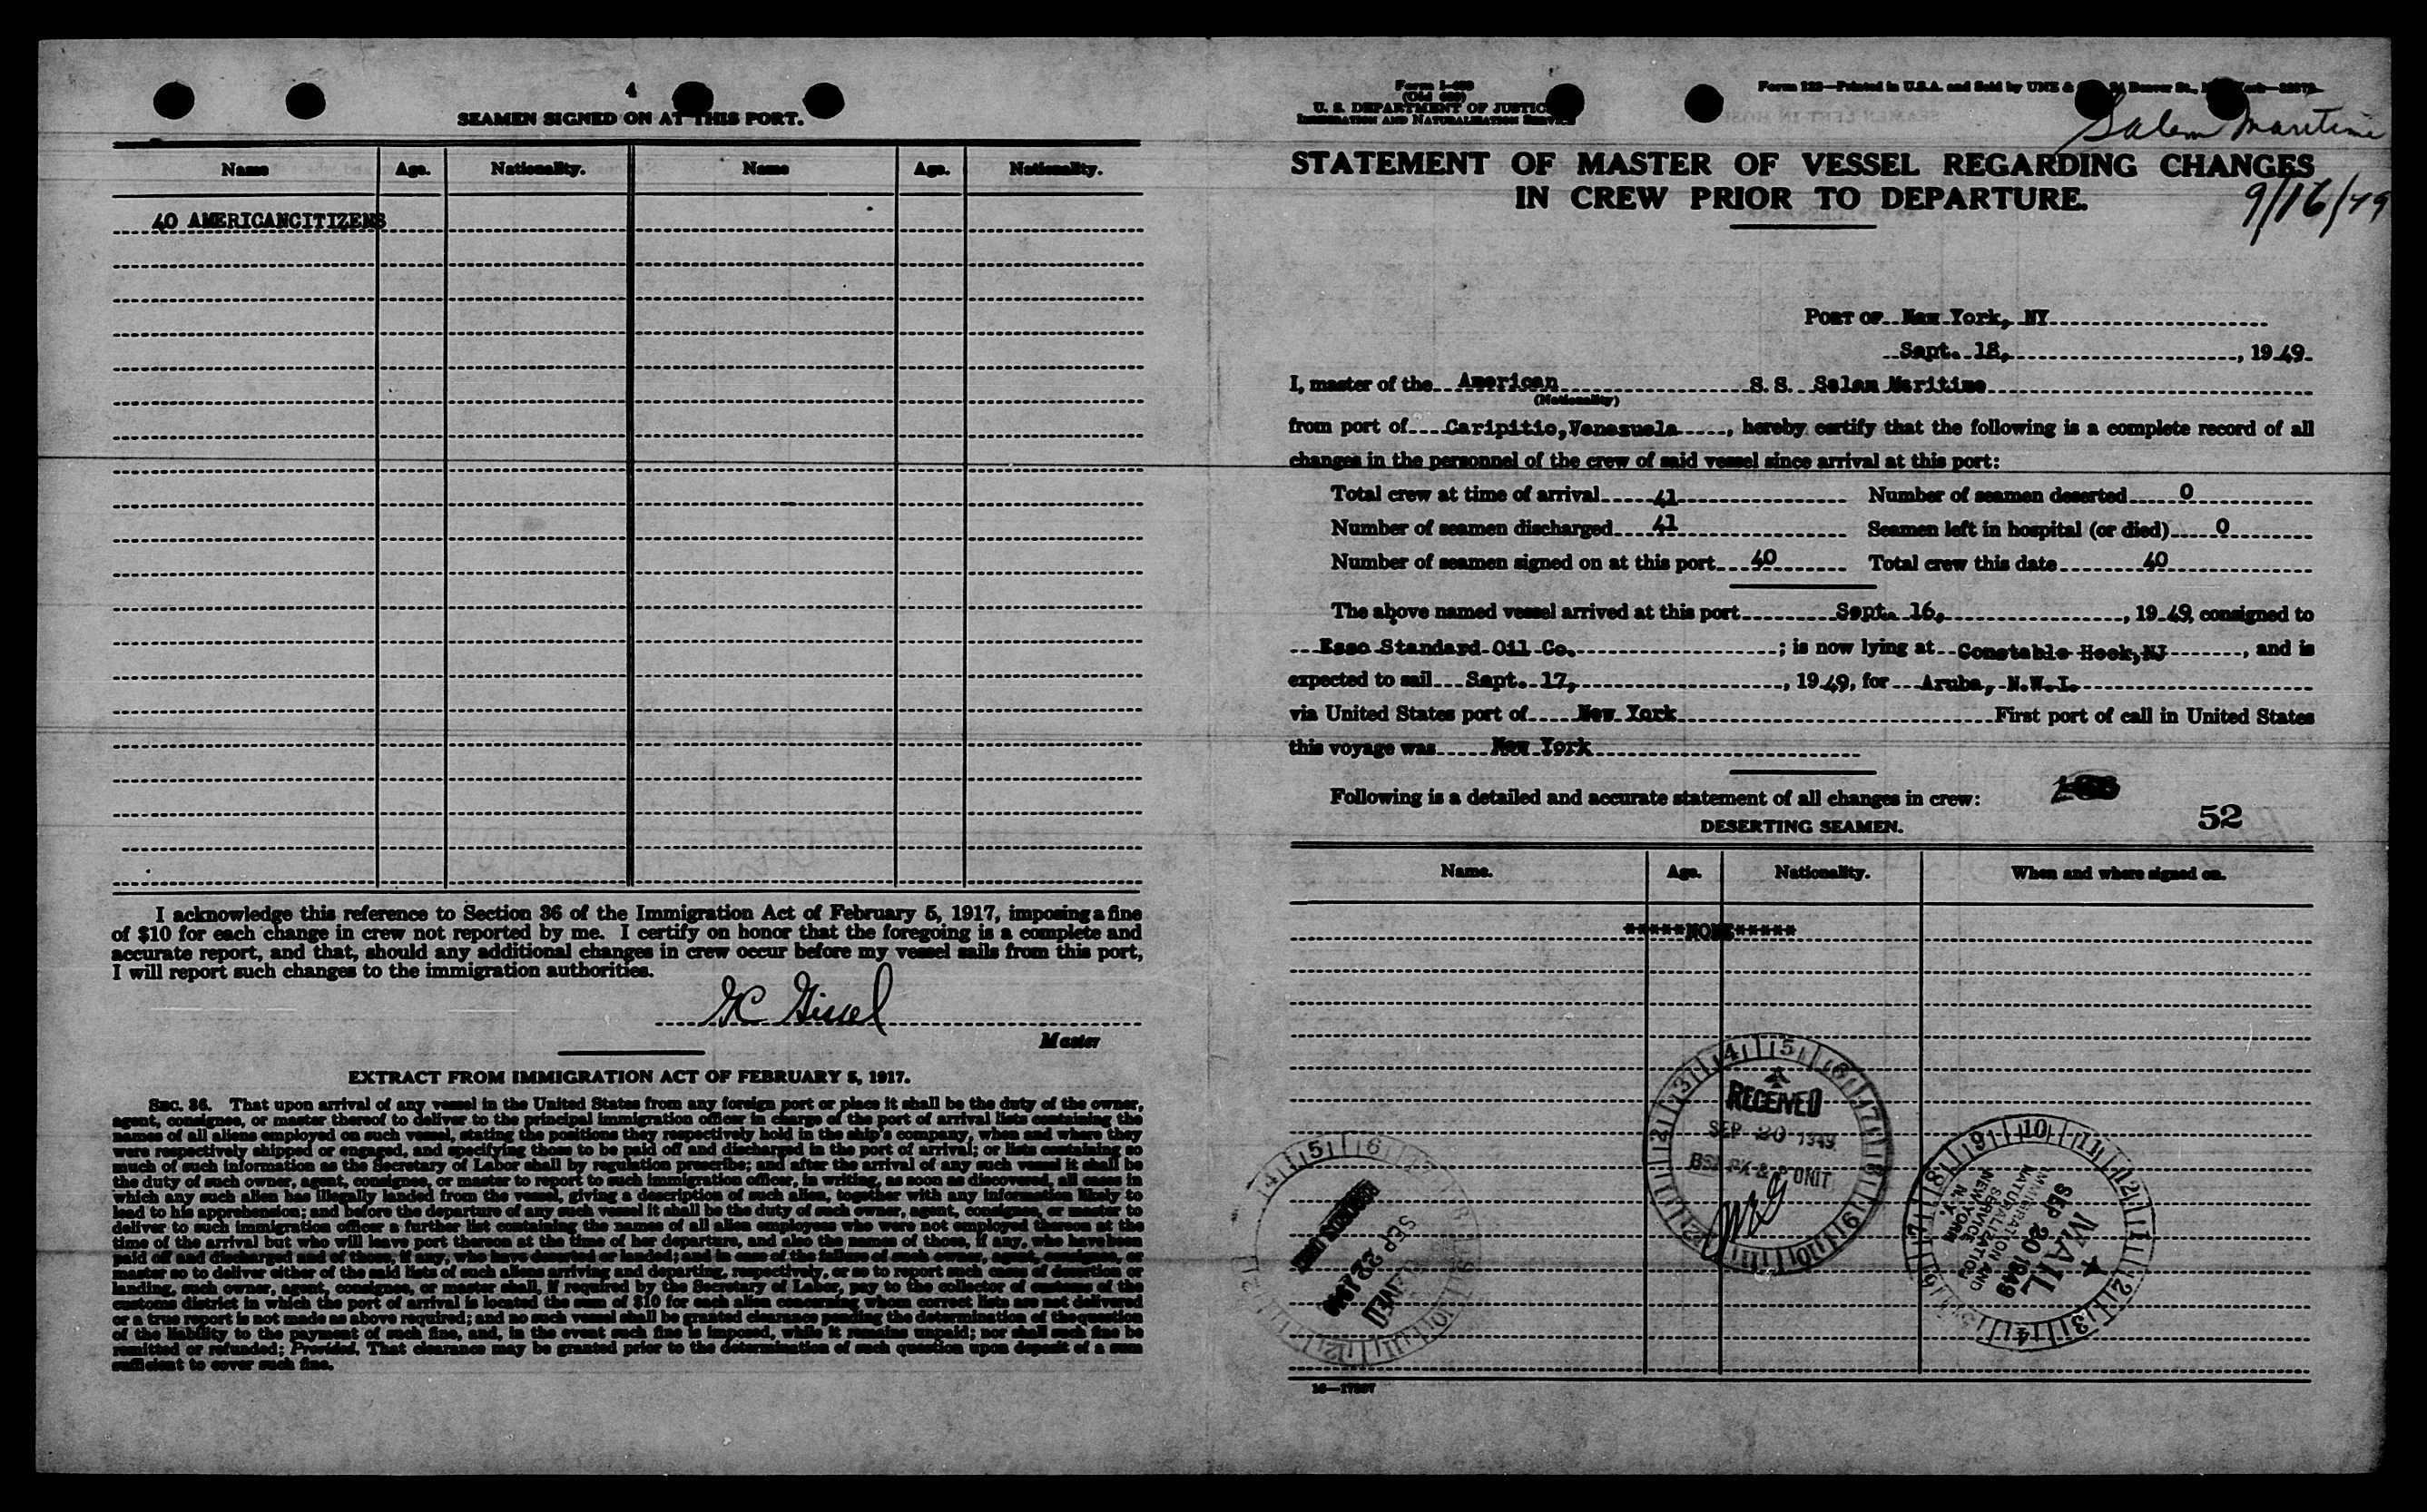 4
SEAMEN SIGNED ON AT THIS PORT.
Name Age. Nationality. Name Age. Nationality.
40 AMERICANCITIZENS
I acknowledge this reference to Section 36 of the Immigration Act of February 5, 1917, imposing a fine
of $10 for each change in crew not reported by me. I certify on honor that the foregoing is a complete and
accurate report, and that, should any additional changes in crew occur before my vessel sails from this port,
I will report such changes to the immigration authorities.
Master
EXTRACT FROM IMMIGRATION ACT OF FEBRUARY 5, 1917.
SEC. 36. That upon arrival of any vessel in the United States from any foreign port or place it shall be the duty of the owner,
agent, consignee, or master thereof to deliver to the principal immigration officer in charge of the port of arrival lists containing the
names of all aliens employed on such vessel, stating the positions they respectively hold in the ship's company, when and where they
were respectively shipped or engaged, and specifying those to be paid off and discharged in the port of arrival; or lists containing so
much of such information as the Secretary of Labor shall by regulation prescribe; and after the arrival of any such vessel it shall be
the duty of such owner, agent, consignee, or master to report to such immigration officer, in writing, as soon as discovered, all cases in
which any such alien has illegally landed from the vessel, giving a description of such alien, together with any information likely to
lead to his apprehension; and before the departure of any such vessel it shall be the duty of such owner, agent, consignee, or master to
deliver to such immigration officer a further list containing the names of all alien employees who were not employed thereon at the
time of the arrival but who will leave port thereon at the time of her departure, and also the names of those, if any, who have been
paid off and discharged and of those, if any, who have deserted or landed; and in case of the failure of such owner, agent, consignee, or
master so to deliver either of the said lists of such aliens arriving and departing, respectively, or so to report such cases of desertion or
landing, such owner, agent, consignee, or master shall, if required by the Secretary of Labor, pay to the collector of customs of the
customs district in which the port of arrival is located the sum of $10 for each alien concerning whom correct lists are not delivered
or a true report is not made as above required; and no such vessel shall be granted clearance pending the determination of the question
of the liability to the payment of such fine, and, in the event such fine is imposed, while it remains unpaid; nor shall such fine be
remitted or refunded; Provided, That clearance may be granted prior to the determination of such question upon deposit of a sum
sufficient to cover such fine.
U. S. DEPARTMENT OF JUSTICE
IMMIGRATION AND NATURALIZATION SERVICE
Printed in U.S.A. and Sold by
Salem Maritime
STATEMENT OF MASTER OF VESSEL REGARDING CHANGES
IN CREW PRIOR TO DEPARTURE.
9/16/49
PORT OF New York, NY
Sept. 18, , 1949
I, master of the American S. S. Salem Maritime
(Nationality)
from port of Caripitio, Venezuela , hereby certify that the following is a complete record of all
changes in the personnel of the crew of said vessel since arrival at this port:
Total crew at time of arrival 41 Number of seamen deserted 0
Number of seamen discharged 41 Seamen left in hospital (or died) 0
Number of seamen signed on at this port 40 Total crew this date 40
The above named vessel arrived at this port Sept. 16, , 1949, consigned to
Esso Standard Oil Co. ; is now lying at Constable Hook, NJ , and is
expected to sail Sept. 17, , 1949, for Aruba, N.W.I.
via United States port of New York First port of call in United States
this voyage was New York
Following is a detailed and accurate statement of all changes in crew:
52
DESERTING SEAMEN.
Name. Age. Nationality. When and where signed on.
*****NONE*****
RECEIVED
SEP 20 1949
UNIT
SEP 22
MAIL
SEP 20 1949
IMMIGRATION AND
NATURALIZATION
SERVICE
NEW YORK
N. Y.